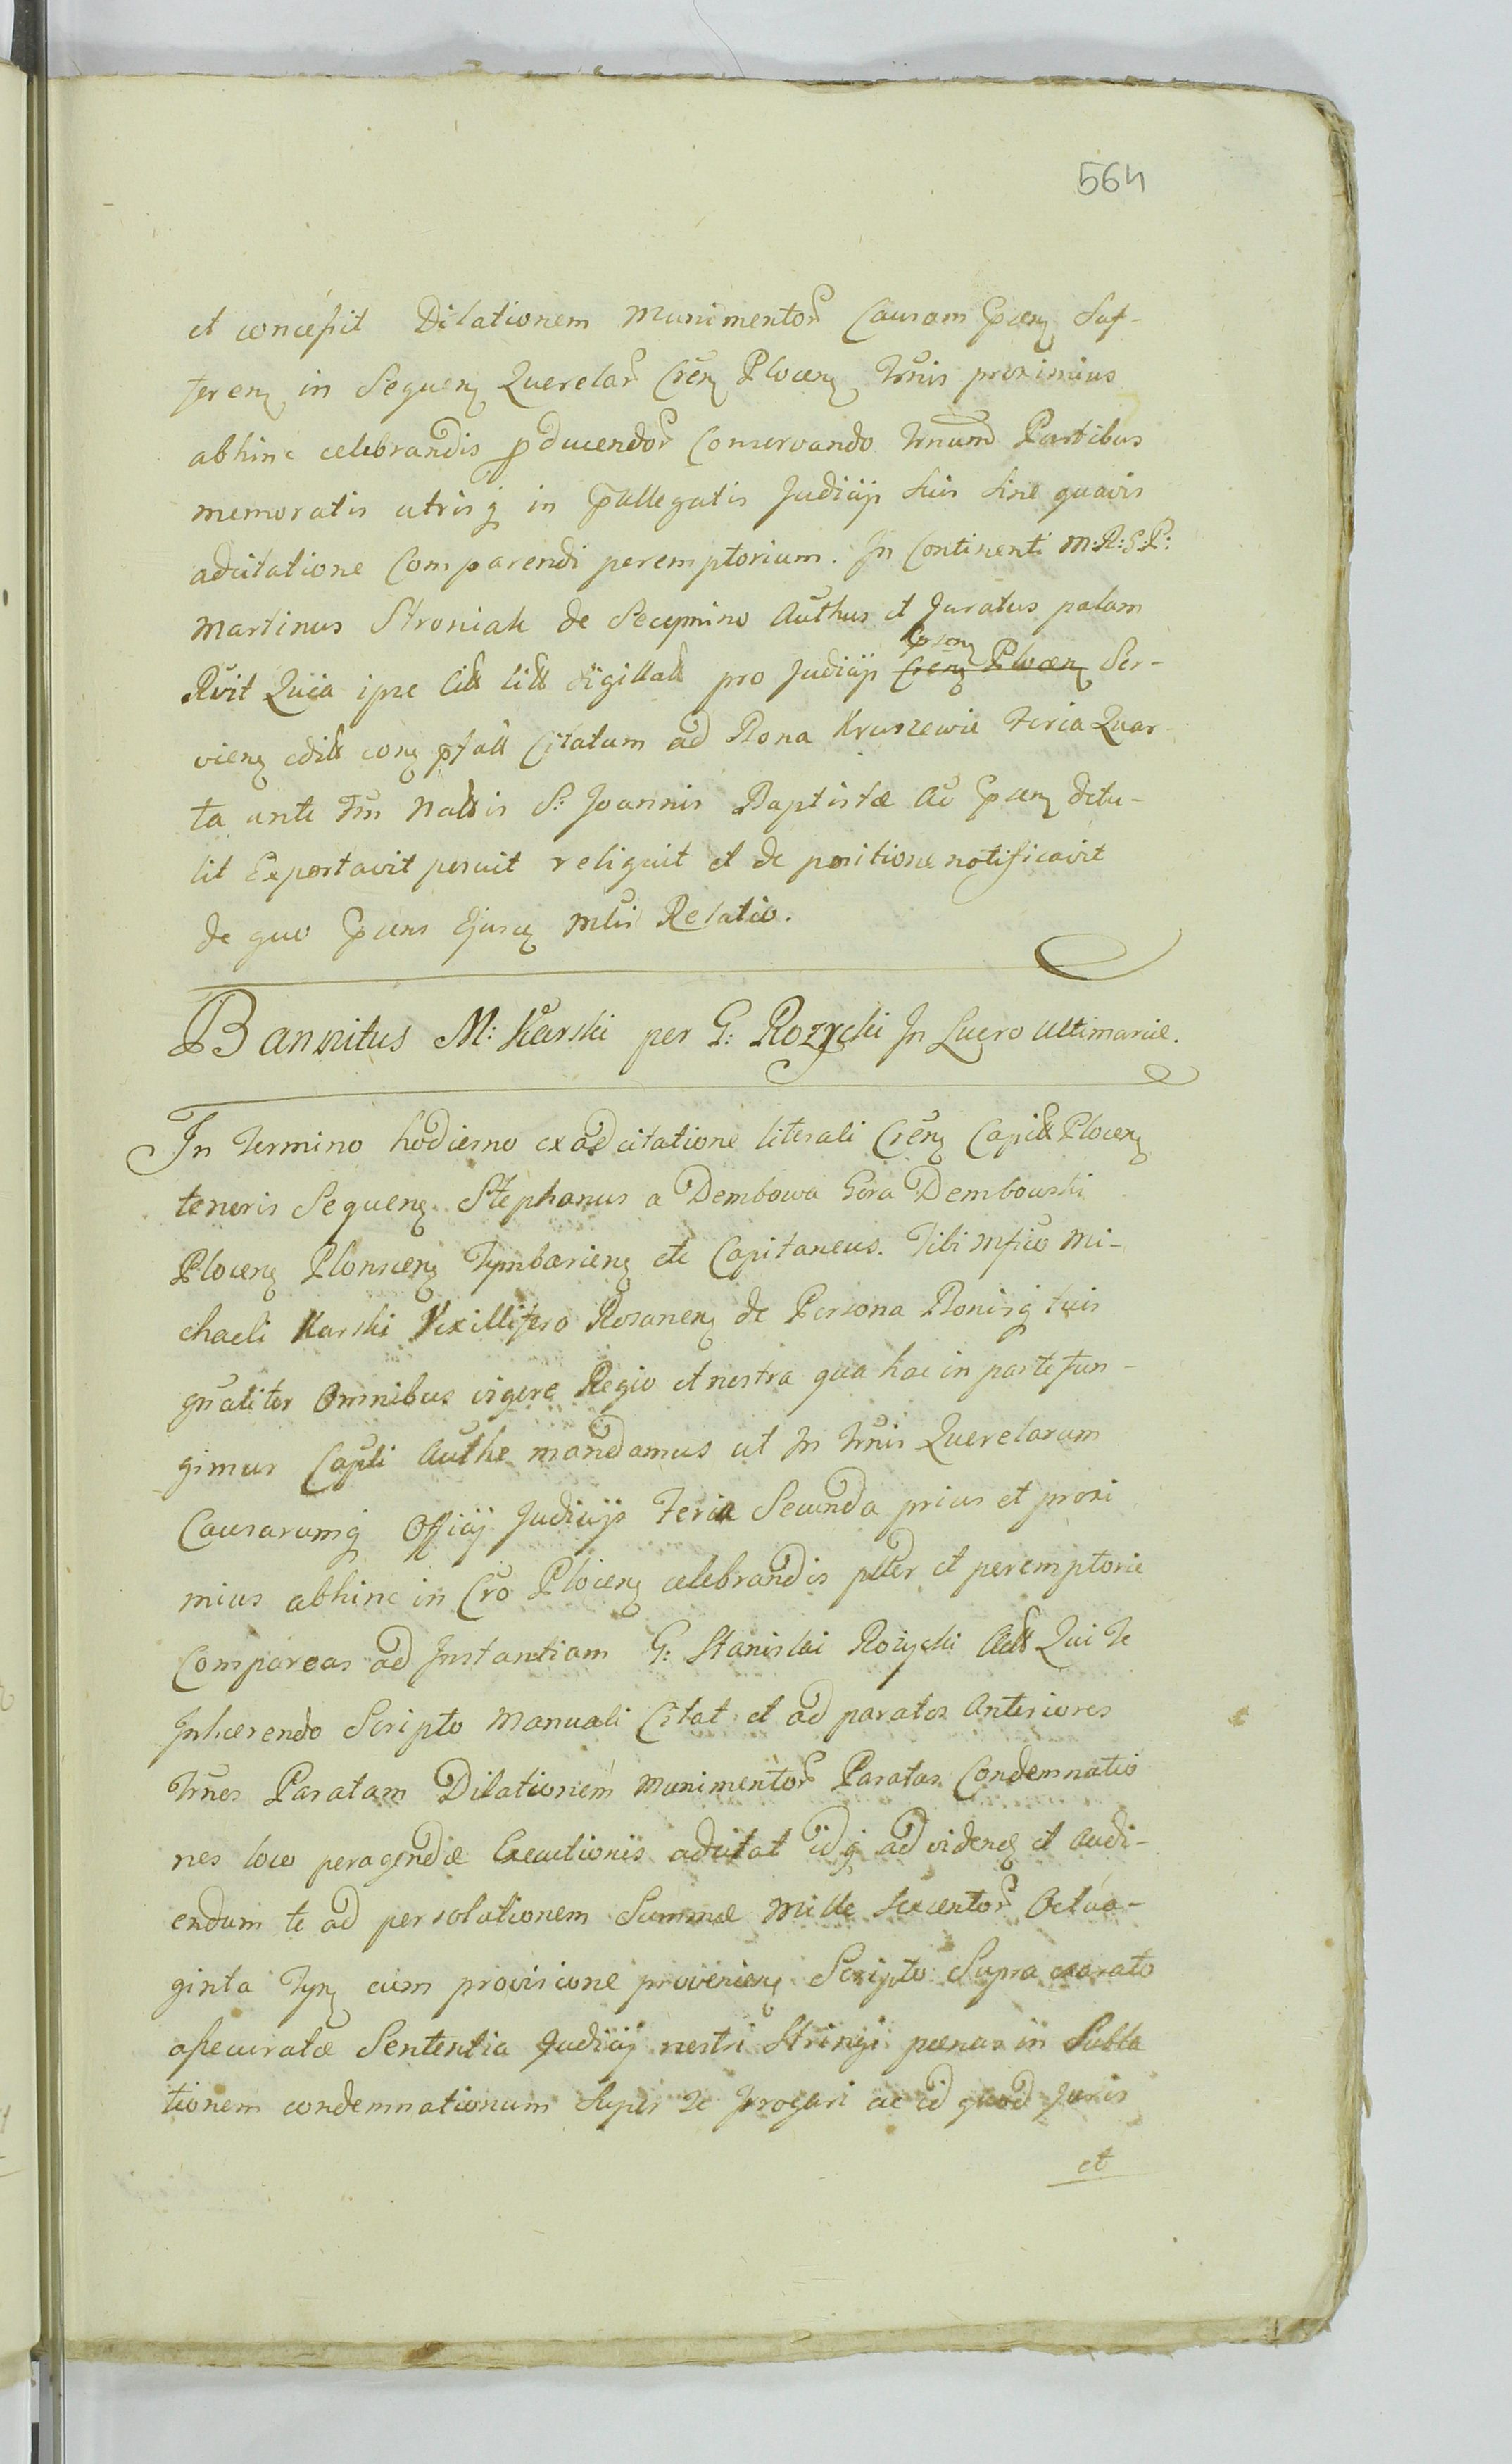 564
et concessit Dilationem Munimentor Causam Praen Suf-
feren in Sequen Querelar Cren Plocen Trnis proximius
abhinc celebrandis pducendor Conservando Trnum Partibus
memoratis utrisq in Pallegatis Judicijs suis sine quavis
adcitatione Comparendi peremptorium. In Continenti M:R:G:P:
Martinus Stroniak de Secymino Authus et Juratus palam
Rvit Quia ipse sigillatt pro Judicijs Cren Plocen Ser-
vien con Citatum ad Bona Kruszewie Feria Quar-
ta ante Fm Nattis S: Joannis Baptistæ Ao Praen detu-
lit Exportavit posuit reliquit et de positione notificavit
de quo Praens Ejusq Mtlis Relatio.
Bannitus M: Karski per G: Rozycki In Lucro Ultimariæ.
In Termino hodierno ex adcitatione literali Cren Capitt Plocen
tenoris Sequen Stephanus a Dembowa Góra Dembowski
Plocen Plonscen Tymbarien etc Capitaneus. Tibi Mfico Mi-
chaeli Karski Vexillifero Rosanen de Persona Bonisq tuis
gnaliter Omnibus vigore Regio et nostra qua hac in parte fun-
gimur Capli Authe mandamus ut In Trnis Querelarum
Causarumq Officij Judicijs Feria Secunda prius et proxi
mius abhinc in Cro Plocen celebrandis plter et peremptorie
Compareas ad Instantiam G: Stanislai Rozycki Qui Te
Inhærendo Scripto Manuali Citat et ad paratos Anteriores
Trnos Paratam Dilationem Munimentor Paratas Condemnatio
nes loco peragendæ Executionis adcitat idq ad viden et Audi-
endum te ad persolutionem Summæ Mille sexcentor Octua-
ginta Tyn cum provisione provenien Scripto Supra exarato
assecuratæ Sententia Judicij nostri Stringi pænas in Subla
tionem condemnationum Super Te Irrogari ac id quod Juris
et